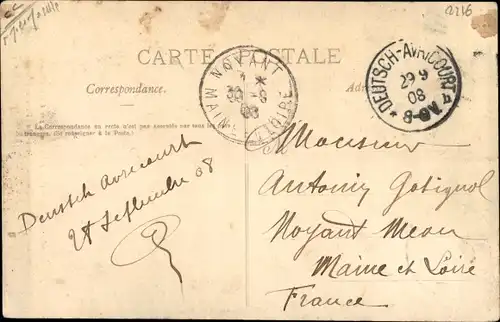 2216
CARTE POSTALE
Correspondance.
La Correspondance au recto n'est pas acceptée par tous les pays
étrangers. (Se renseigner à la Poste.)
NOYANT
MAINE
LOIRE
30 -9
08
DEUTSCH-AVRICOURT
29 9
08
Deutsch Avricourt
28 Septembre 08
Monsieur
Antonin
Noyant Meon
Maine et Loire
France